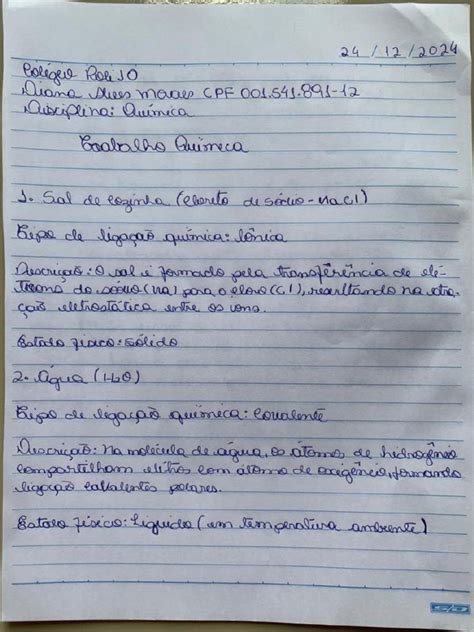 24/12/2024
Colégio Poli JO
Diana Alves Moraes CPF 001.541.891-12
Disciplina: Química
Trabalho Química
1. Sal de cozinha (cloreto de sódio - NaCl)
Tipo de ligação química: Iônica
Descrição: O sal é formado pela transferência de elé-
trons do sódio (Na) para o cloro (Cl), resultando na atra-
ção eletrostática entre os íons.
Estado físico: sólido
2. Água (H2O)
Tipo de ligação química: Covalente
Descrição: Na molécula de água, os átomos de hidrogênio
compartilham com átomo de oxigênio, formando
ligação polares.
Estado físico: Líquido (em temperatura ambiente)